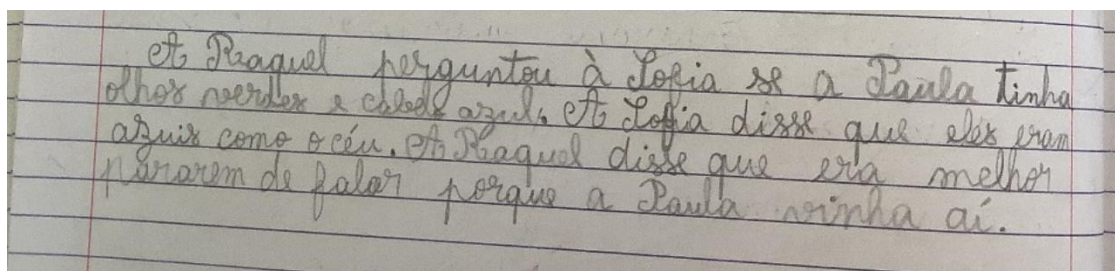 A Raquel perguntou à Sofia se a Paula tinha
olhos verdes e cabelo azul. A Sofia disse que eles eram
azuis como o céu. A Raquel disse que era melhor
pararem de falar porque a Paula vinha aí.